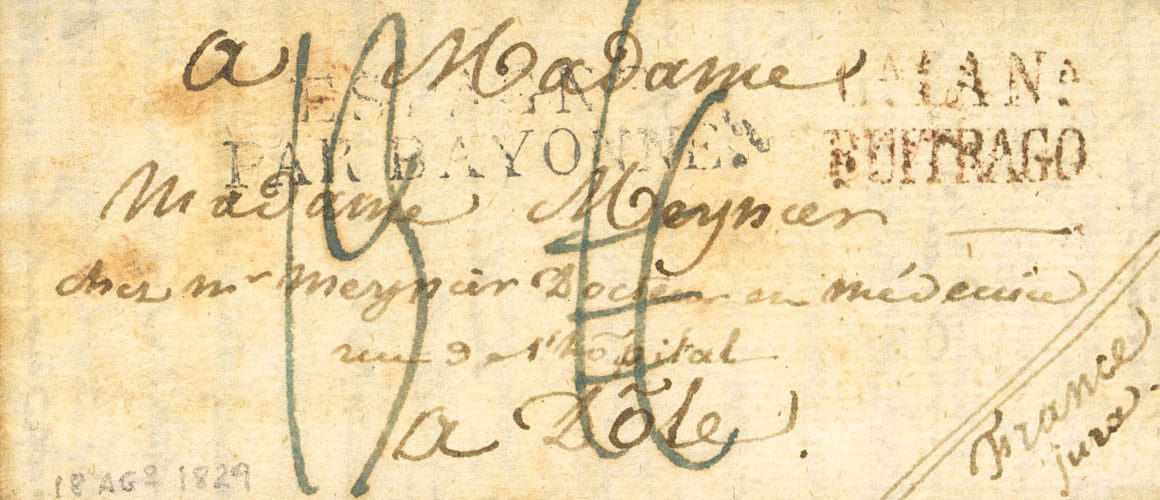 a Madame
ESPAGNE
PAR BAYONNE.
C.LA Nª
BUITRAGO
Madame Meynier
chez mr Meynier Docteur en médecine
rue de l'hôpital
a Dôle
France
jura
18 AGº 1829